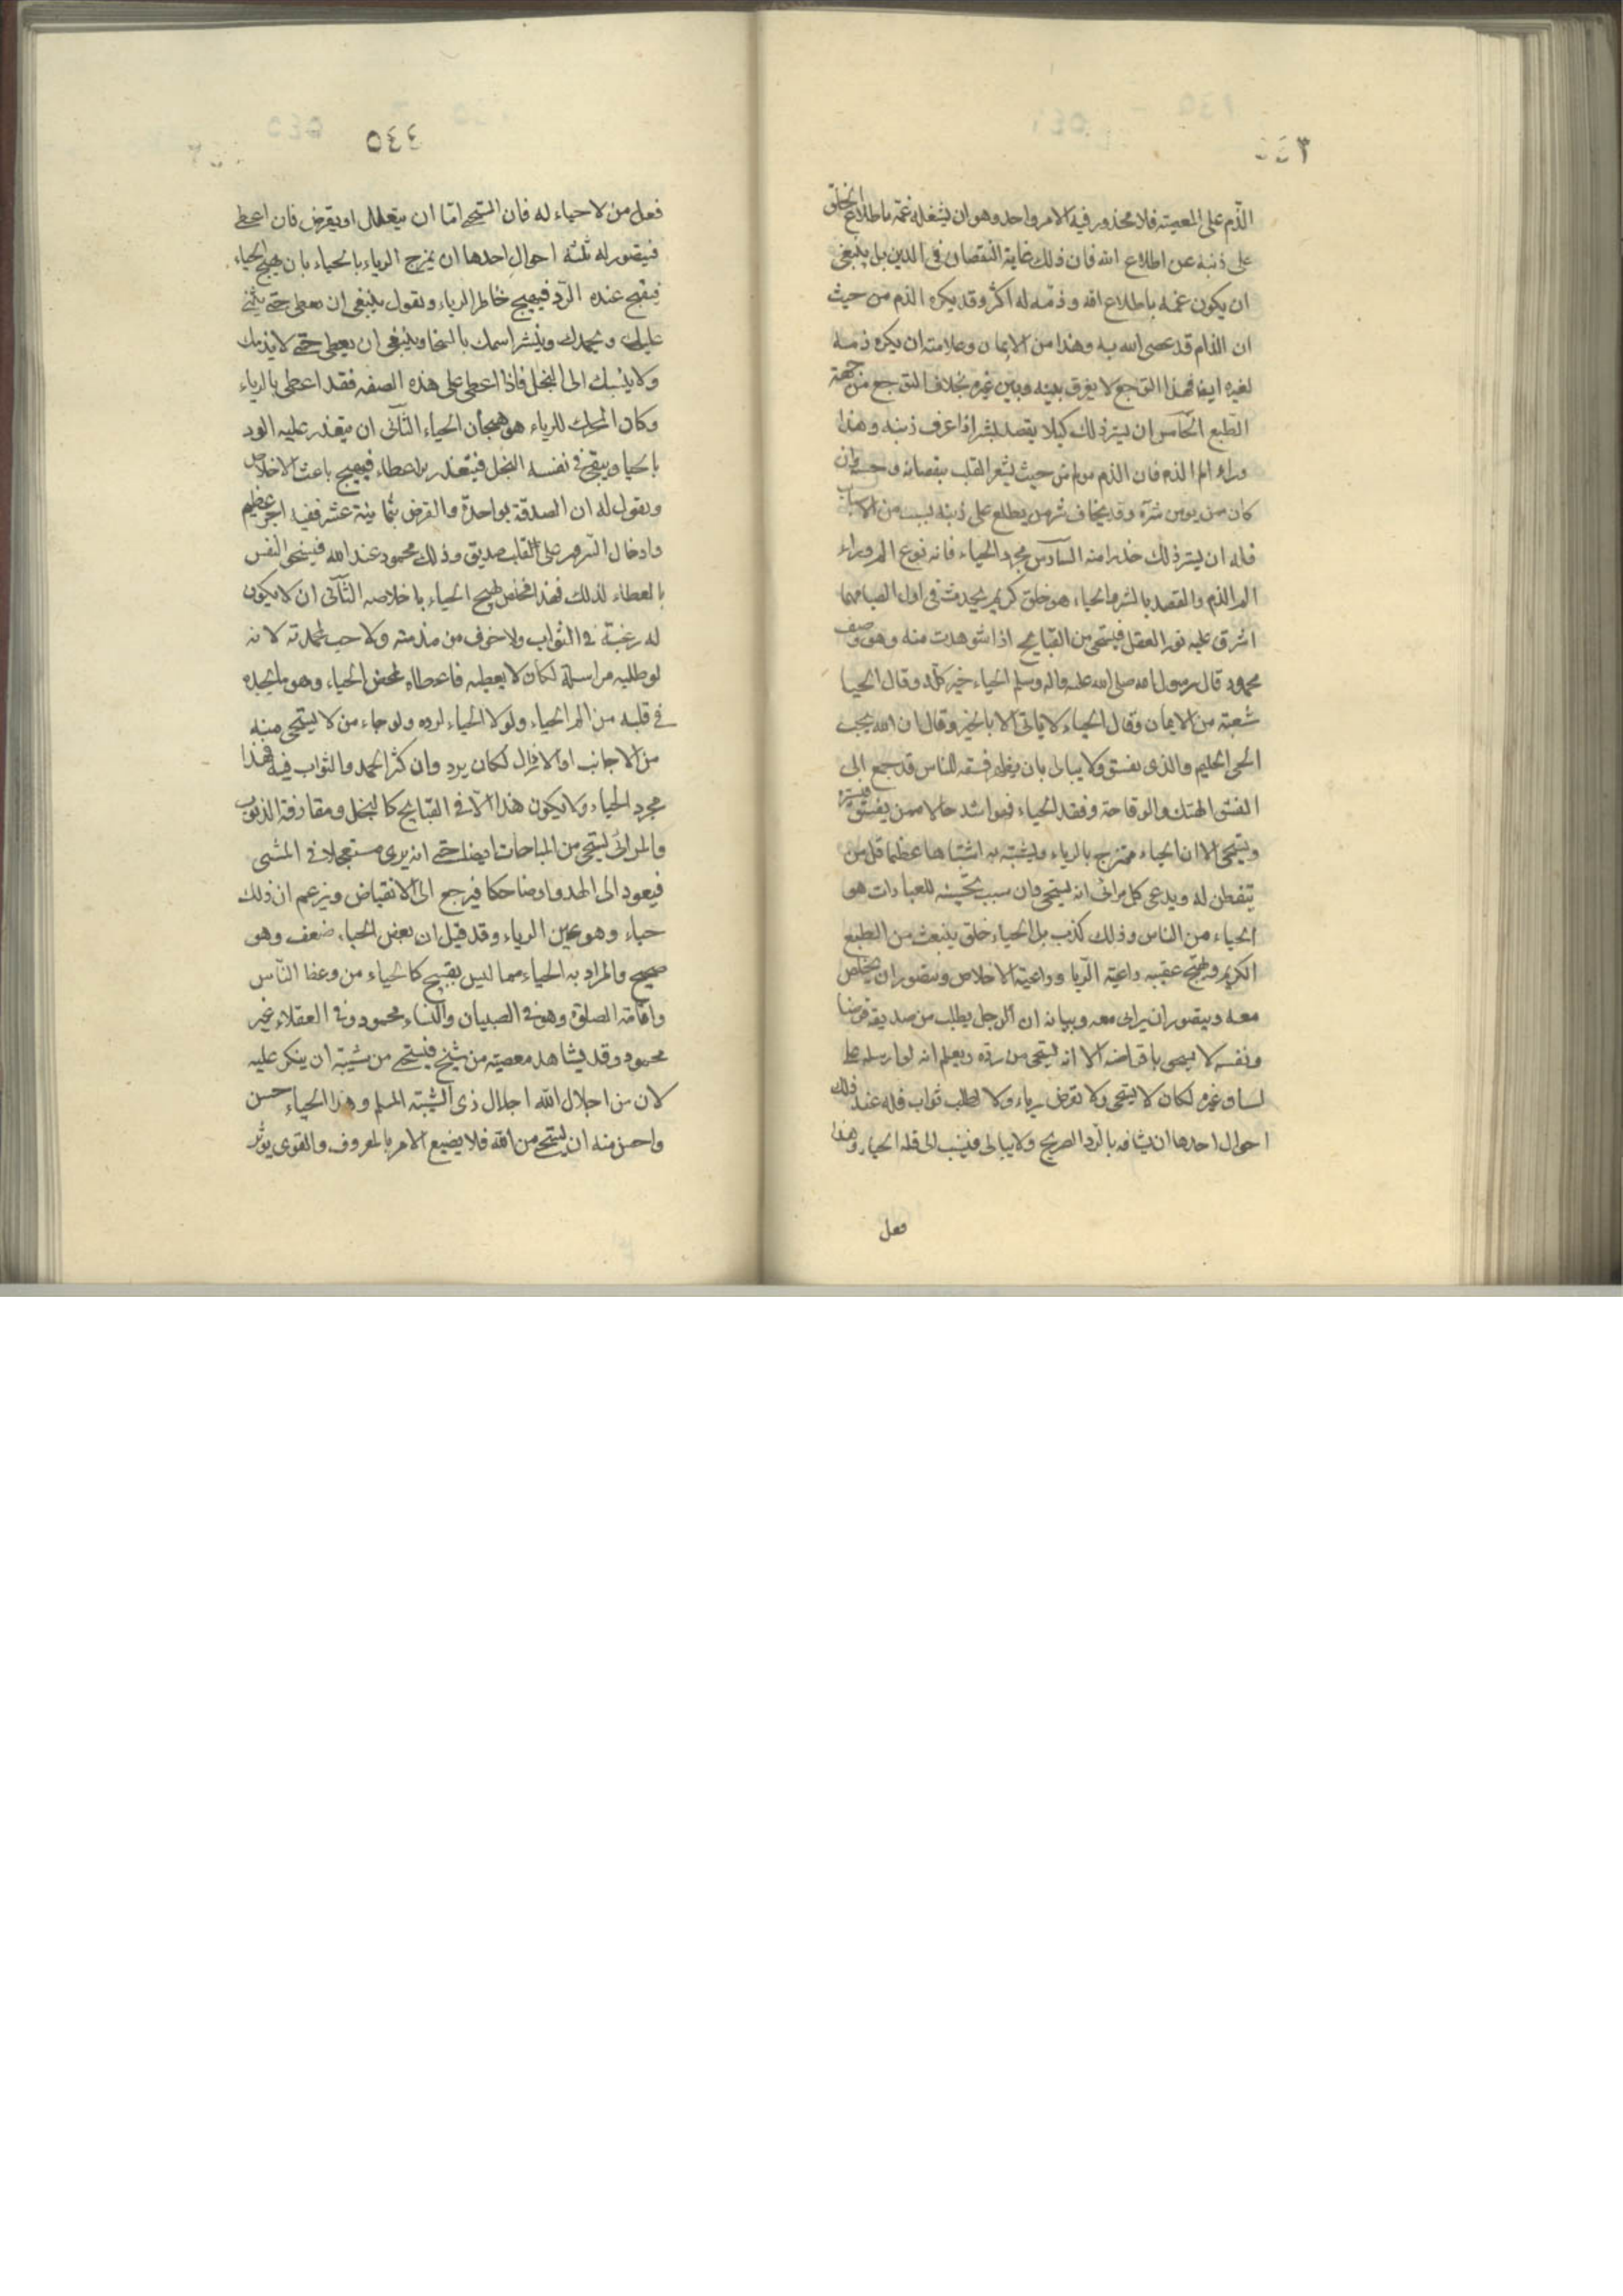 الذّم على المعصية فلا محذور فيه الا امر واحد وهو ان يشغله غمّه باطلاع الخلق
على ذنبه عن اطلاع الله فان ذلك غاية النقصان فى الدين بل ينبغى
ان يكون غمه باطلاع الله وذمّه له اكثر وقد يكره الذم من حيث
ان الذام قد عصى الله به وهذا من الايمان وعلامته ان يكره ذمه
لغيره ايضا فهذا التوجع لا يفرق بينه وبين غيره بخلاف التوجع من جهة
الطبع الخامس ان يستر ذلك كيلا يقصد بشر اذا عرف ذنبه وهذا
وراء الم الذم فان الذم مولم من حيث يشعر القلب بنقصانه وخسته وان
كان ممن يومن شرّه وقد يخاف شر من يطلع على ذنبه بسبب من الاسباب
فله ان يستر ذلك حذرا منه السادس مجرد الحياء فانه نوع الم وراء
الم الذم والقصد بالشر والحياء هو خلق كريم يحدث فى اول الصبا مهما
اشرق عليه نور العقل فيستحى من القبايح اذا شوهدت منه وهو وصف
محمود قال رسول الله صلى الله عليه واله وسلم الحياء خير كلّه وقال الحيا
شعبة من الايمان وقال الحياء لا ياتى الا بالخير وقال ان الله يحب
الحى الحليم والذى يفسق ولا يبالى بان يظهر فسقه للناس قد جمع الى
الفسق الهتك والوقاحة وفقد الحياء فهو اشد حالا ممن يفسق ويستره
ويستحى الا ان الحياء ممتزج بالرياء ويشتبه به اشتباها عظيما قل من
يتفطن له ويدعى كل مرائى انه يستحى وان سبب تحسينه للعبادات هو
الحياء من الناس وذلك كذب بل الحياء خلق ينبعث من الطبع
الكريم ويهيج عقيبه داعية الريا وداعية الاخلاص ويتصور ان يخلص
معه ويتصور ان يرائى معه وبيانه ان الرجل يطلب من صديقه قرضا
ونفسه لا تسمح باقراضه الا انه يستحى من رده ويعلم انه لو ارسله على
لسان غيره لكان لا يستحى ولا يقرض رياء ولا لطلب ثواب فله عند ذلك
احوال احدها ان يشافه بالرد الصريح ولا يبالى فينسب الى قلة الحياء وهذا
فعل
٤٤٥
فعل من لا حياء له فان المستحى امّا ان يتعلل او يقرض فان اعطى
فيتصور له ثلثة احوال احدها ان يمزج الرياء بالحياء بان يهيج الحياء
فيقبح عنده الرد فيهيج خاطر الرياء ويقول ينبغى ان تعطى حتى يثنى
عليك ويحمدك وينشر اسمك بالسخا وينبغى ان يعطى حتى لا يذمك
ولا ينسبك الى البخل فاذا اعطى على هذه الصفه فقد اعطى بالرياء
وكان المحرك للرياء هو هيجان الحياء الثانى ان يتعذر عليه الرد
بالحيا ويبقى فى نفسه البخل فيتعذر الاعطاء فيهيج باعث الاخلاص
ويقول له ان الصدقة بواحدة والقرض بثمانية عشر ففيه اجر عظيم
وادخال السرور على القلب صديق وذلك محمود عند الله فيسخى النفس
بالعطاء لذلك فهذا مخلص هيج الحياء باخلاصه الثالث ان لا يكون
له رغبة فى الثواب ولا خوف من مذمته ولا حب لمحمدته لانه
لو طلبه مراسلة لكان لا يعطيه فاعطاه لمحض الحياء وهو ما يجده
فى قلبه من الم الحياء ولولا الحياء لرده ولو جاء من لا يستحى منه
من الاجانب او الاراذل لكان يرد وان كثر الحمد والثواب فيه فهذا
مجرد الحياء ولا يكون هذا الّا فى القبايح كالبخل ومقارفة الذنوب
والمرائى يستحى من المباحات ايضا حتى انه يرى مستعجلا فى المشى
فيعود الى الهدو او ضاحكا فيرجع الى الانقباض ويزعم ان ذلك
حياء وهو عين الرياء وقد قيل ان بعض الحياء ضعف وهو
صحيح والمراد به الحياء مما ليس بقبيح كالحياء من وعظ الناس
واقامة الصلوة وهو فى الصبيان والنساء محمود وفى العقلاء غير
محمود وقد يشاهد معصية من شيخ فيستحى من شيبته ان ينكر عليه
لان من اجلال الله اجلال ذى الشيبة المسلم وهذا الحياء حسن
واحسن منه ان يستحى من الله فلا يضيع الامر بالمعروف والقوى يؤثر